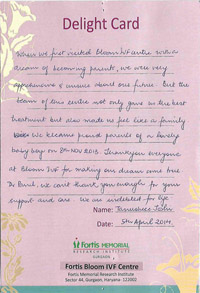 Delight Card
When we first visited Bloom IVF centre with a
dream of becoming parents, we were very
apprehensive & unsure about our future. But the
team of this centre not only gave us the best
treatment but also made us feel like a family
We became proud parents of a lovely
baby boy on 8th NOV 2013. Thankyou everyone
at Bloom IVF for making our dream come true
Dr. we can't thank you enough for your
support and care. We are indebted for life
Name:
Date: 5th April 2014
Fortis MEMORIAL
RESEARCH INSTITUTE
GURGAON
Fortis Bloom IVF Centre
Fortis Memorial Research Institute
Sector 44, Gurgaon, Haryana- 122002